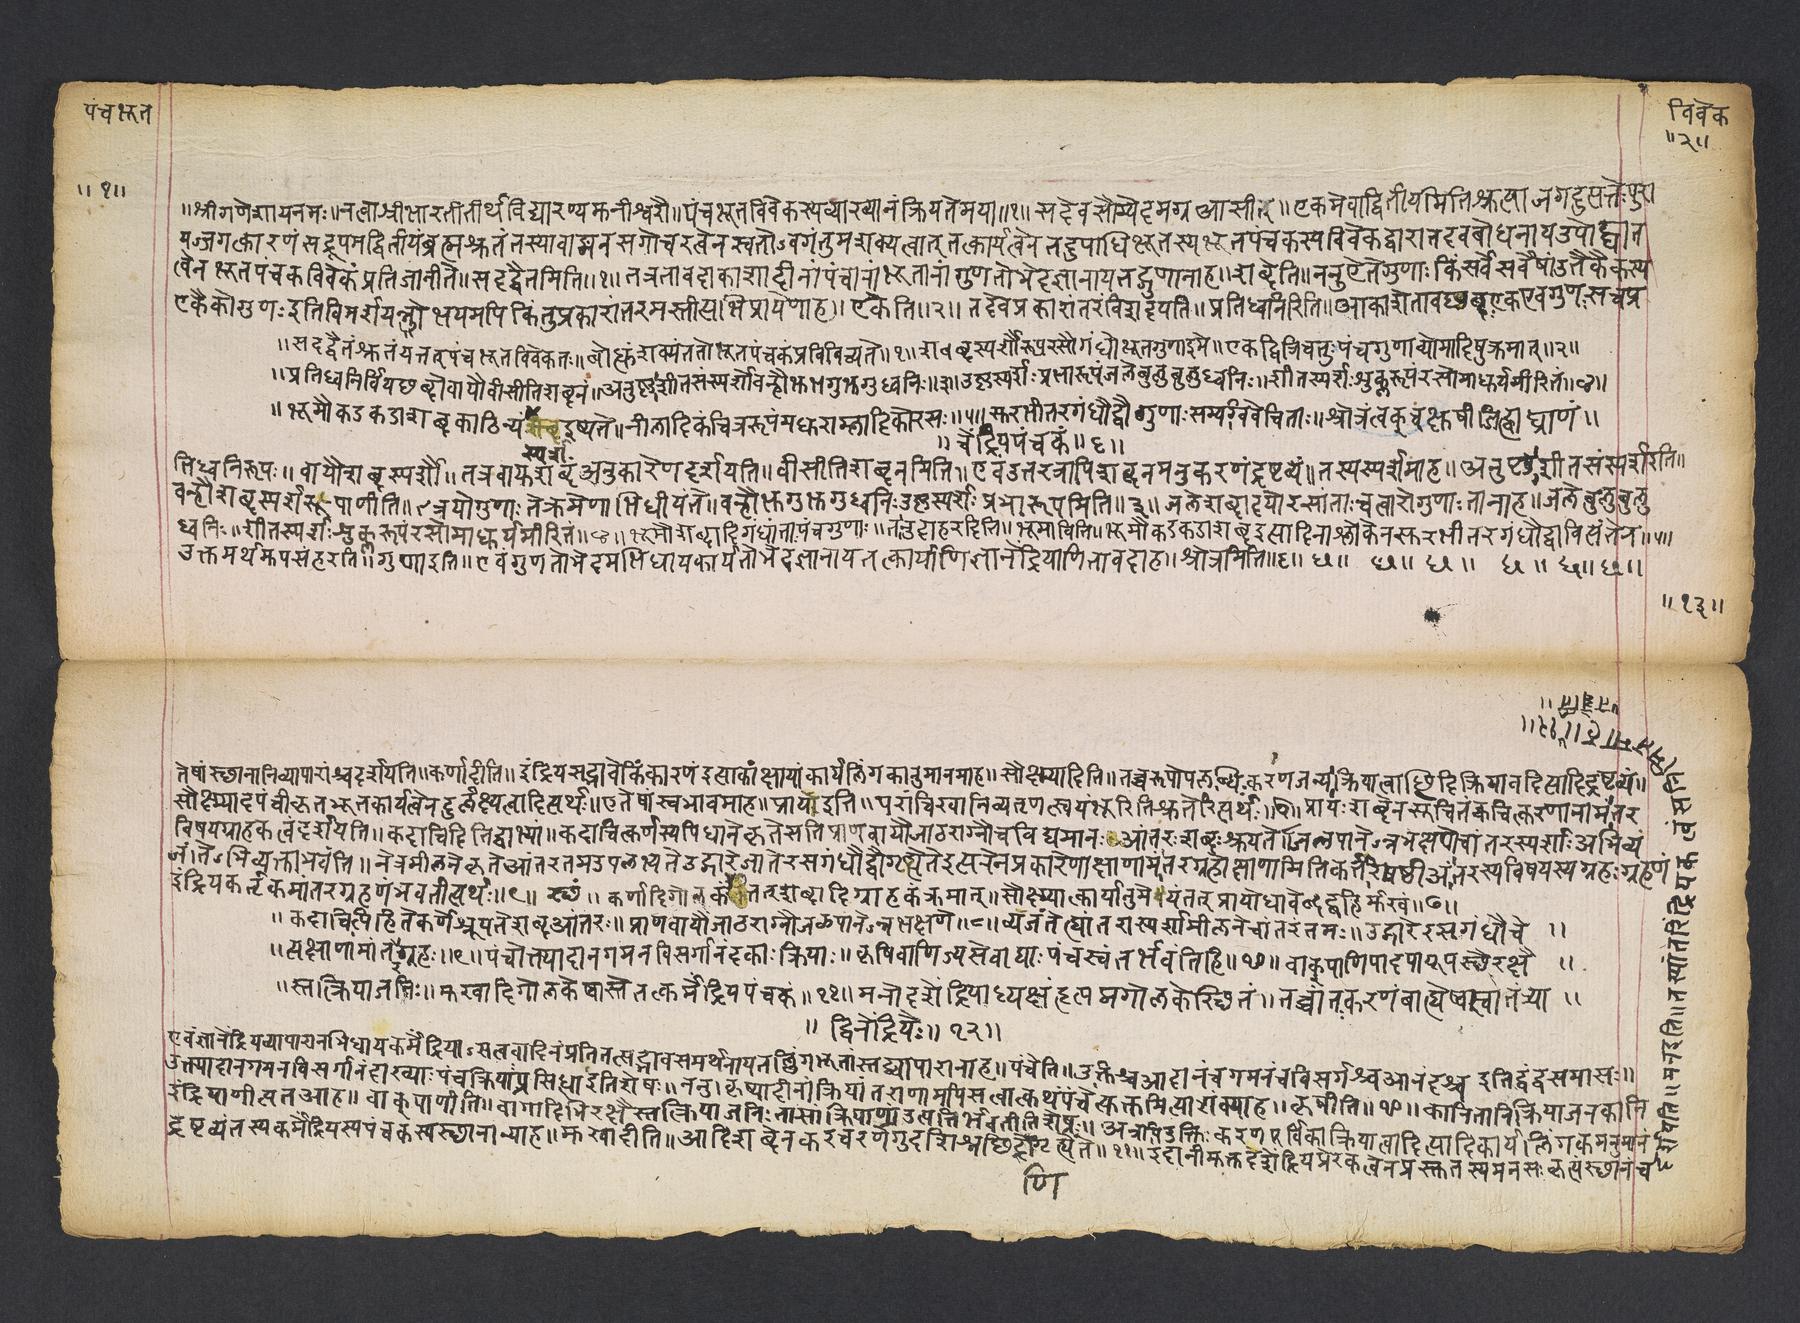 पंचभूत
विवेक
॥२॥
॥१॥
॥श्रीगणेशायनमः॥नत्वाश्रीभारतीतीर्थविद्यारण्यमुनीश्वरौ॥पंचभूतविवेकस्यव्याख्यानंक्रियतेमया॥१॥सदेवसौम्येदमग्रआसीत्॥एकमेवाद्वितीयमितिश्रुत्याजगदुत्पत्तेःपुरा
यज्जगत्कारणंसद्रूपमद्वितीयंब्रह्मश्रुतंतस्यावाङ्मनसगोचरत्वेनस्वतोऽवगंतुमशक्यत्वात्तत्कार्यत्वेनतदुपाधिभूतस्यभूतपंचकस्यविवेकद्वारातदवबोधनायउपोद्घात
त्वेनभूतपंचकविवेकंप्रतिजानीते॥सदद्वैतमिति॥१॥तत्रतावदाकाशादीनांपंचानांभूतानांगुणतोभेदज्ञानायतद्गुणानाह॥शब्देति॥ननुएतेगुणाःकिंसर्वेसर्वेषांउतैकैकस्य
एकैकोगुणःइतिविमर्शायन्नोभयमपिकिंतुप्रकारांतरमस्तीत्यभिप्रायेणाह॥एकेति॥२॥तदेवप्रकारांतरंविशदयति॥प्रतिध्वनिरिति॥आकाशेतावच्छब्दःएकएवगुणःसचप्र
॥सदद्वैतंश्रुतंयत्तत्पंचभूतविवेकतः॥बोद्धुंशक्यंततोभूतपंचकंप्रविविच्यते॥१॥शब्दस्पर्शौरूपरसौगंधोभूतगुणाइमे॥एकद्वित्रिचतुःपंचगुणाव्योमादिषुक्रमात्॥२॥
॥प्रतिध्वनिर्वियछब्दोवायौवीसीतिशब्दनं॥अनुष्णाशीतसंस्पर्शोवन्हौभुगुभुगुध्वनिः॥३॥उष्णस्पर्शःप्रभारूपंजलेबुलुबुलुध्वनिः॥शीतस्पर्शःशुक्लरूपंरसोमाधुर्यमीरितं॥४॥
॥भूमौकडकडाशब्दकाठिन्यंस्पर्शइष्यते॥नीलादिकंचित्ररूपंमधुराम्लादिकोरसः॥५॥सुरभीतरगंधौद्वौगुणाःसम्यग्विवेचिताः॥श्रोत्रंत्वक्चक्षुषीजिह्वाघ्राणं॥
॥चेंद्रियपंचकं॥६॥
स्पर्श
तिध्वनिरूपः॥वायौशब्दस्पर्शौ॥तत्रवायुशब्दंअनुकारेणदर्शयति॥वीसीतिशब्दनमिति॥एवंउत्तरत्रापिशब्दनमनुकरणंद्रष्टव्यं॥तस्यस्पर्शमाह॥अनुष्णाशीतसंस्पर्शइति॥
वन्हौशब्दस्पर्शरूपाणीति॥त्रयोगुणाःतेक्रमेणाभिधीयंते॥वन्हौभुगुभुगुध्वनिःउष्णस्पर्शःप्रभारूपमिति॥३॥जलेशब्दादयोरसांताःचत्वारोगुणाःतानाह॥जलेबुलुबुलु
ध्वनिः॥शीतस्पर्शःशुक्लरूपंरसोमाधुर्यमीरितं॥४॥भूमौशब्दादिगंधांताःपंचगुणाः॥तानुदाहरदिति॥भूमाविति॥भूमौकडकडाशब्दइत्यादिनाश्लोकेनसुरभीतरगंधौद्वावित्यंतेन॥५॥
उक्तमर्थमुपसंहरति॥गुणाइति॥एवंगुणतोभेदमभिधायकार्यतोभेदज्ञानायतत्कार्याणिज्ञानेंद्रियाणितावदाह॥श्रोत्रमिति॥६॥
॥१३॥
तेषांस्थानानिव्यापारांश्चदर्शयति॥कर्णादीति॥इंद्रियसद्भावेकिंकारणंइत्याकांक्षायांकार्यलिंगकानुमानमाह॥सौक्ष्म्यादिति॥तच्चरूपोपलब्धिःकरणजन्याक्रियात्वाछिदिक्रियावदित्यादिद्रष्टव्यं॥
सौक्ष्म्यादपंचीकृतभूतकार्यत्वेनदुर्लक्ष्यत्वादित्यर्थः॥एतेषांस्वभावमाह॥प्रायोइति॥परांचिखानिव्यतृणत्स्वयंभूरितिश्रुतेरित्यर्थः॥७॥प्रायःशब्देनसूचितंक्वचित्करणानामांतर
विषयग्राहकत्वंदर्शयति॥कदाचिदितिद्वाभ्यां॥कदाचित्कर्णस्यपिधानेकृतेसतिप्राणवायौजाठराग्नौचविद्यमानःआंतरःशब्दःश्रूयतेजलपानेऽन्नभक्षणेचांतरस्पर्शाःअभिव्यं
जंतेऽभिव्यक्ताभवंति॥नेत्रमीलनेकृतेआंतरतमउपलभ्यतेउद्गारेजातेरसगंधौद्वौगृह्येतेइत्यनेनप्रकारेणाक्षाणामांतरग्रहोक्षाणामितिकर्तरिषष्ठीआंतरस्यविषयस्यग्रहःग्रहणं
इंद्रियकर्तृकमांतरग्रहणंभवतीत्यर्थः॥९॥॥कर्णादिगोलकस्थंतच्छब्दादिग्राहकंक्रमात्॥सौक्ष्म्यात्कार्यानुमेयंतत्प्रायोधावेद्बहिर्मुखं॥७॥
॥कदाचित्पिहितेकर्णेश्रूयतेशब्दआंतरः॥प्राणवायौजाठराग्नौजलपानेऽन्नभक्षणे॥८॥व्यजंतेह्यांतरास्पर्शामीलनेचांतरंतमः॥उद्गारेरसगंधौचे॥
॥त्यक्षाणामांतरग्रहः॥९॥पंचोक्त्यादानगमनविसर्गानंदकाःक्रियाः॥कृषिवाणिज्यसेवाद्याःपंचस्वंतर्भवंतिहि॥१०॥वाक्पाणिपादपायूपस्थैरक्षै॥
॥स्तत्क्रियाजनिः॥मुखादिगोलकेष्वास्तेतत्कर्मेंद्रियपंचकं॥११॥मनोदशेंद्रियाध्यक्षंहृत्पद्मगोलकेस्थितं॥तच्चांतःकरणंबाह्येष्वस्वातंत्र्या॥
॥द्विनेंद्रियैः॥१२॥
एवंज्ञानेंद्रियव्यापारानभिधायकर्मेंद्रियाऽसत्ववादिनंप्रतितत्सद्भावसमर्थनायतल्लिंगभूतांस्तद्व्यापारानाह॥पंचेति॥उक्तिश्चआदानंचगमनंचविसर्गश्चआनंदश्चइतिद्वंद्वसमासः॥
उक्त्यादानगमनविसर्गानंदाख्याःपंचक्रियाःप्रसिद्धाइतिशेषः॥ननुकृष्यादीनांक्रियांतराणामपिसत्वात्कथंपंचेत्युक्तमित्याशंक्याह॥कृषीति॥१०॥कानितानिक्रियाजनकानि
इंद्रियाणीत्यतआह॥वाक्पाणीति॥वागादिभिरक्षैस्तत्क्रियाजनिःतासांक्रियाणांउत्पत्तिर्भवतीतिशेषः॥अत्रापिउक्तिःकरणपूर्विकाक्रियात्वादित्यादिकार्यलिंगकमनुमानं
द्रष्टव्यंतस्यकर्मेंद्रियस्यपंचकस्यस्थानान्याह॥मुखादीति॥आदिशब्देनकरचरणगुदशिश्नछिद्राणिगृह्यंते॥११॥इदानींमुक्तदशेंद्रियप्रेरकत्वेनप्रस्तुतस्यमनसःकृत्यंस्थानंच
णि
दर्शयति॥मनइति॥तस्यांतरिंद्रियकत्वंसनि